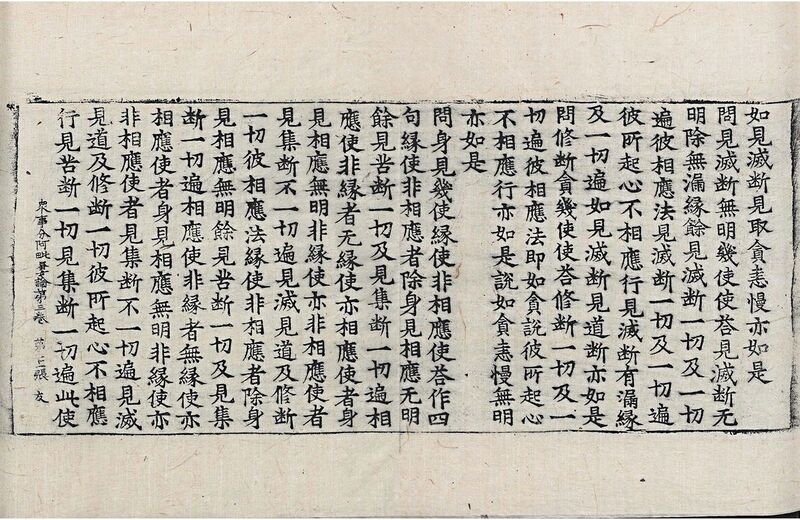 如見滅断見取貪恚慢亦如是
問見滅断無明幾使使荅見滅断无
明除無漏縁餘見滅断一切及一切
遍彼相應法見滅断一切及一切遍
彼所起心不相應行見滅断有漏縁
及一切遍如見滅断見道断亦如是
問修断貪幾使使荅修断一切及一
切遍彼相應法即如貪說彼所起心
不相應行亦如是說如貪恚慢無明
亦如是
問身見幾使縁使非相應使荅作四
句縁使非相應者除身見相應无明
餘見苦断一切及見集断一切遍相
應使非縁者无縁使亦相應使者身
見相應無明非縁使亦非相應使者
見集断不一切遍見滅見道及修断
一切彼相應法縁使非相應者除身
見相應無明餘見苦断一切及見集
断一切遍相應使非縁者無縁使亦
相應使者身見相應無明非縁使亦
非相應使者見集断不一切遍見滅
見道及修断一切彼所起心不相應
行見苦断一切見集断一切遍此使
衆事分阿毗曇論第三卷 第七張 友